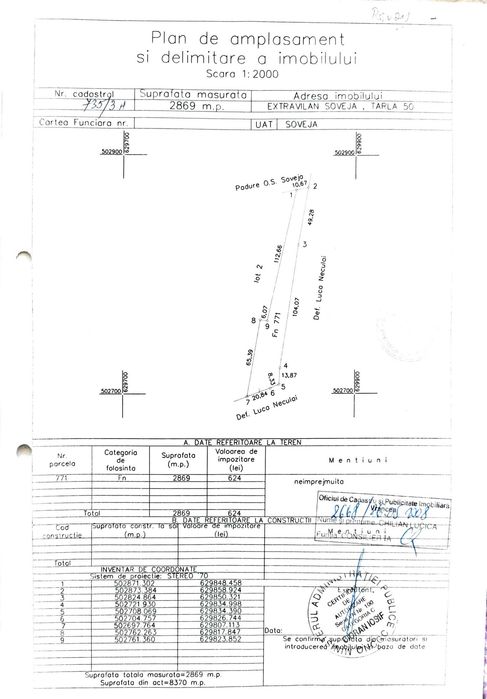 Plan de amplasament
si delimitare a imobilului
Scara 1:2000
Nr. cadastral Suprafata masurata Adresa imobilului
735/3A 2869 m.p. EXTRAVILAN SOVEJA , TARLA 50
Cartea Funciara nr. UAT SOVEJA
502900 629700
502900 629900
Padure O.S. Soveja
10,67
1 2
49,28
3
112,66
lot 2
Def. Luca Neculai
104,07
Fn 771
6,07
8
9
65,39
4
8,33 13,87
5
6
20,84
7
Def. Luca Neculai
502700 629700
502700 629900
A. DATE REFERITOARE LA TEREN
Nr. parcela Categoria de folosinta Suprafata (m.p.) Valoarea de impozitare (lei) Mentiuni
771 Fn 2869 624 neimprejmuita
Total 2869 624
Oficiul de Cadastru si Publicitate Imobiliara
Vrancea
Nume si prenume CHILIAN LUCICA
B. DATE REFERITOARE LA CONSTRUCTII
Cod constructie Suprafata constr. la sol (m.p.) Valoare de impozitare (lei) Mentiuni
Total
INVENTAR DE COORDONATE
Sistem de proiectie: STEREO 70
1 502871.302 629848.458
2 502873.384 629858.924
3 502824.864 629850.321
4 502721.930 629834.998
5 502708.068 629834.390
6 502704.757 629826.744
7 502697.764 629807.113
8 502762.263 629817.847
9 502761.360 629823.852
Executant,
Data:
Se confirma suprafata din masuratori si
introducerea imobilului in baza de date
Suprafata totala masurata=2869 m.p.
Suprafata din act=8370 m.p.